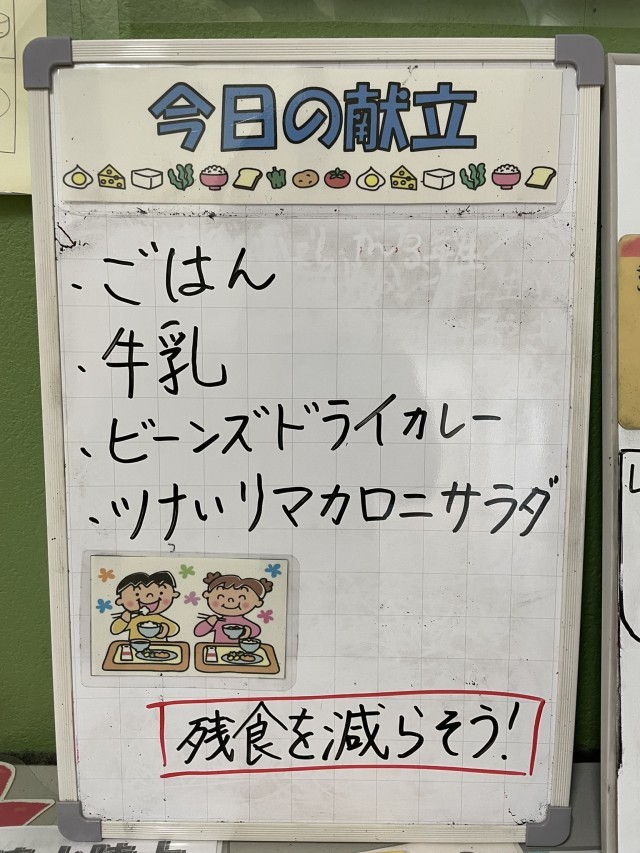 今日の献立
・ごはん
・牛乳
・ビーンズドライカレー
・ツナいりマカロニサラダ
残食を減らそう!